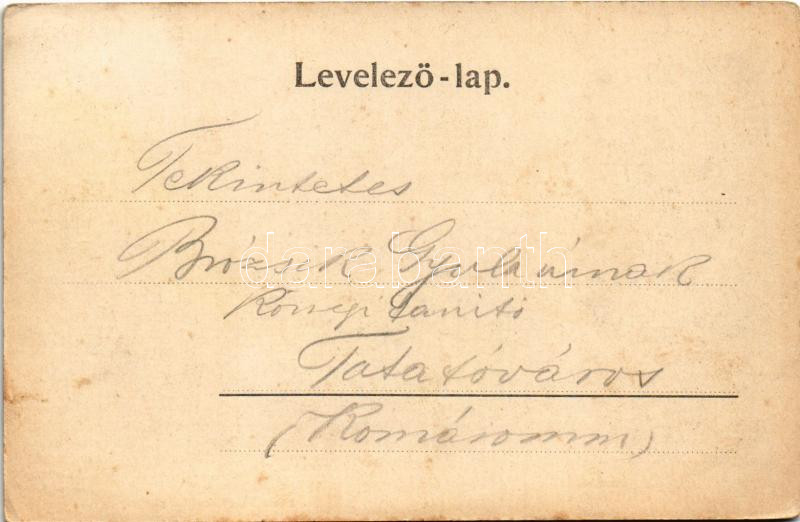 Levelező-lap.
Tekintetes
Brózsek Gyula úrnak
Községi tanitó
Tatatóváros
(Komárommm)
darabanth